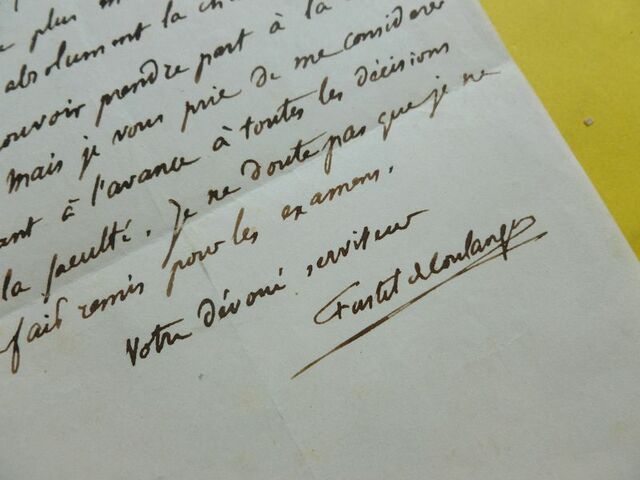 plus
absolument la
pouvoir prendre part à la
Mais je vous prie de me considérer
à l'avance à toutes les décisions
la faculté. Je ne doute pas que je ne
fait remis pour les examens.
Votre dévoué serviteur
Fustel de Coulanges